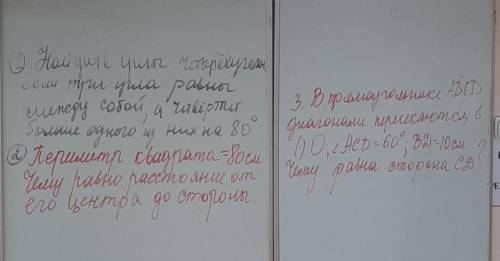 ① Найдите углы четырёхугол
если три угла равны
между собой, а четвёртый
больше одного из них на 80°
② Периметр квадрата = 80 см
Чему равно расстояние от
его центра до стороны.
3. В прямоугольнике ABCD
диагонали пересекаются в
() O, ∠ACD = 60°, BD = 10см
Чему равна сторона CD?